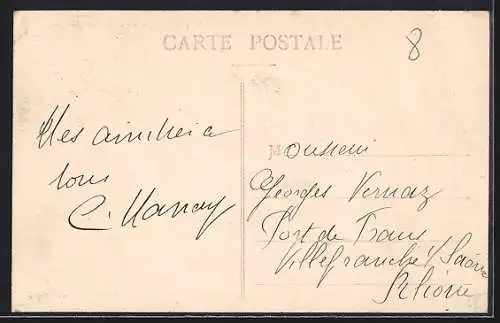 CARTE POSTALE
8
Mes amitiés à
tous
Monsieur
Georges Vernaz
Port de Frans
Villefranche s/ Saône
Rhône